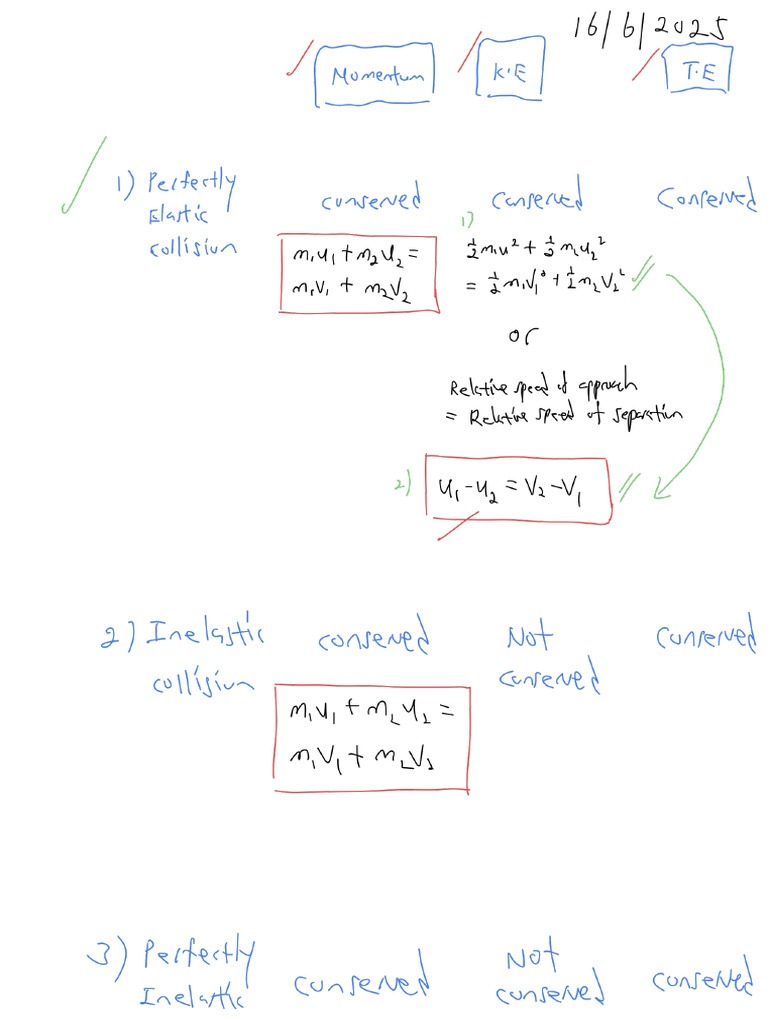 16/6/2025
Momentum K.E T.E
1) Perfectly Elastic collision
conserved conserved conserved
m₁u₁ + m₂u₂ =
m₁v₁ + m₂v₂
1)
½m₁u² + ½m₂u₂²
= ½m₁v₁² + ½m₂v₂²
or
Relative speed of approach
= Relative speed of separation
2) u₁ - u₂ = v₂ - v₁
2) Inelastic conserved Not conserved
collision conserved
m₁u₁ + m₂u₂ =
m₁v₁ + m₂v₂
3) Perfectly Not
Inelastic conserved conserved conserved